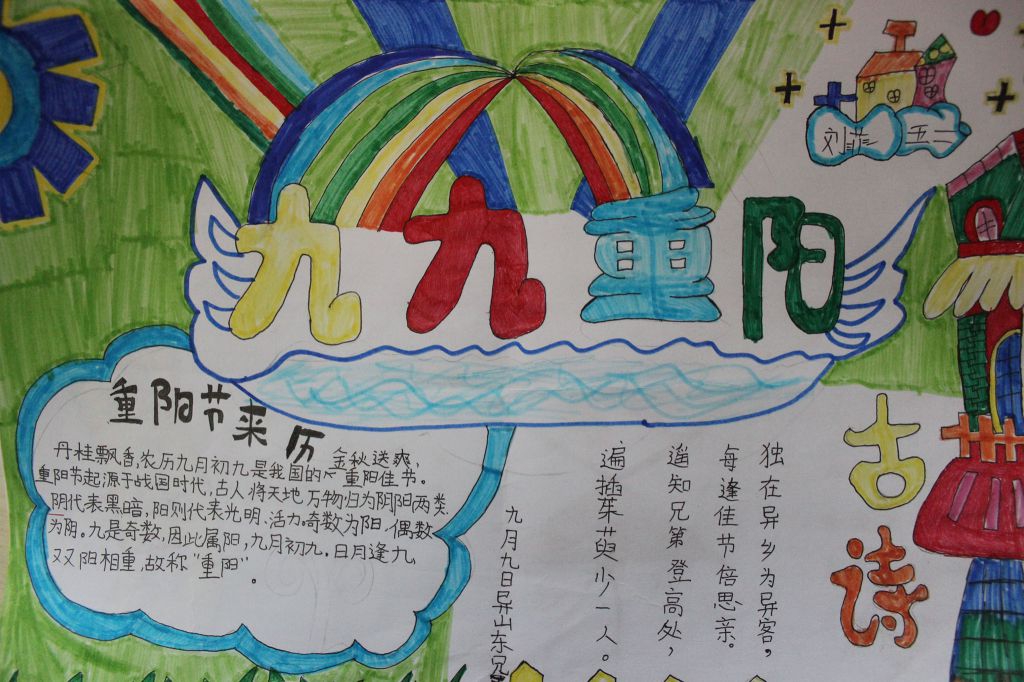 九九重阳
刘
五二
重阳节来历
金秋送爽,
丹桂飘香,农历九月初九是我国的重阳佳节。
重阳节起源于战国时代,古人将天地,万物归为阴阳两类
阴代表黑暗,阳则代表光明、活力。奇数为阳,偶数
为阴。九是奇数,因此属阳,九月初九,日月逢九,
双阳相重,故称“重阳”。
古诗
独在异乡为异客,
每逢佳节倍思亲。
遥知兄第登高处,
遍插茱萸少一人。
九月九日异山东兄